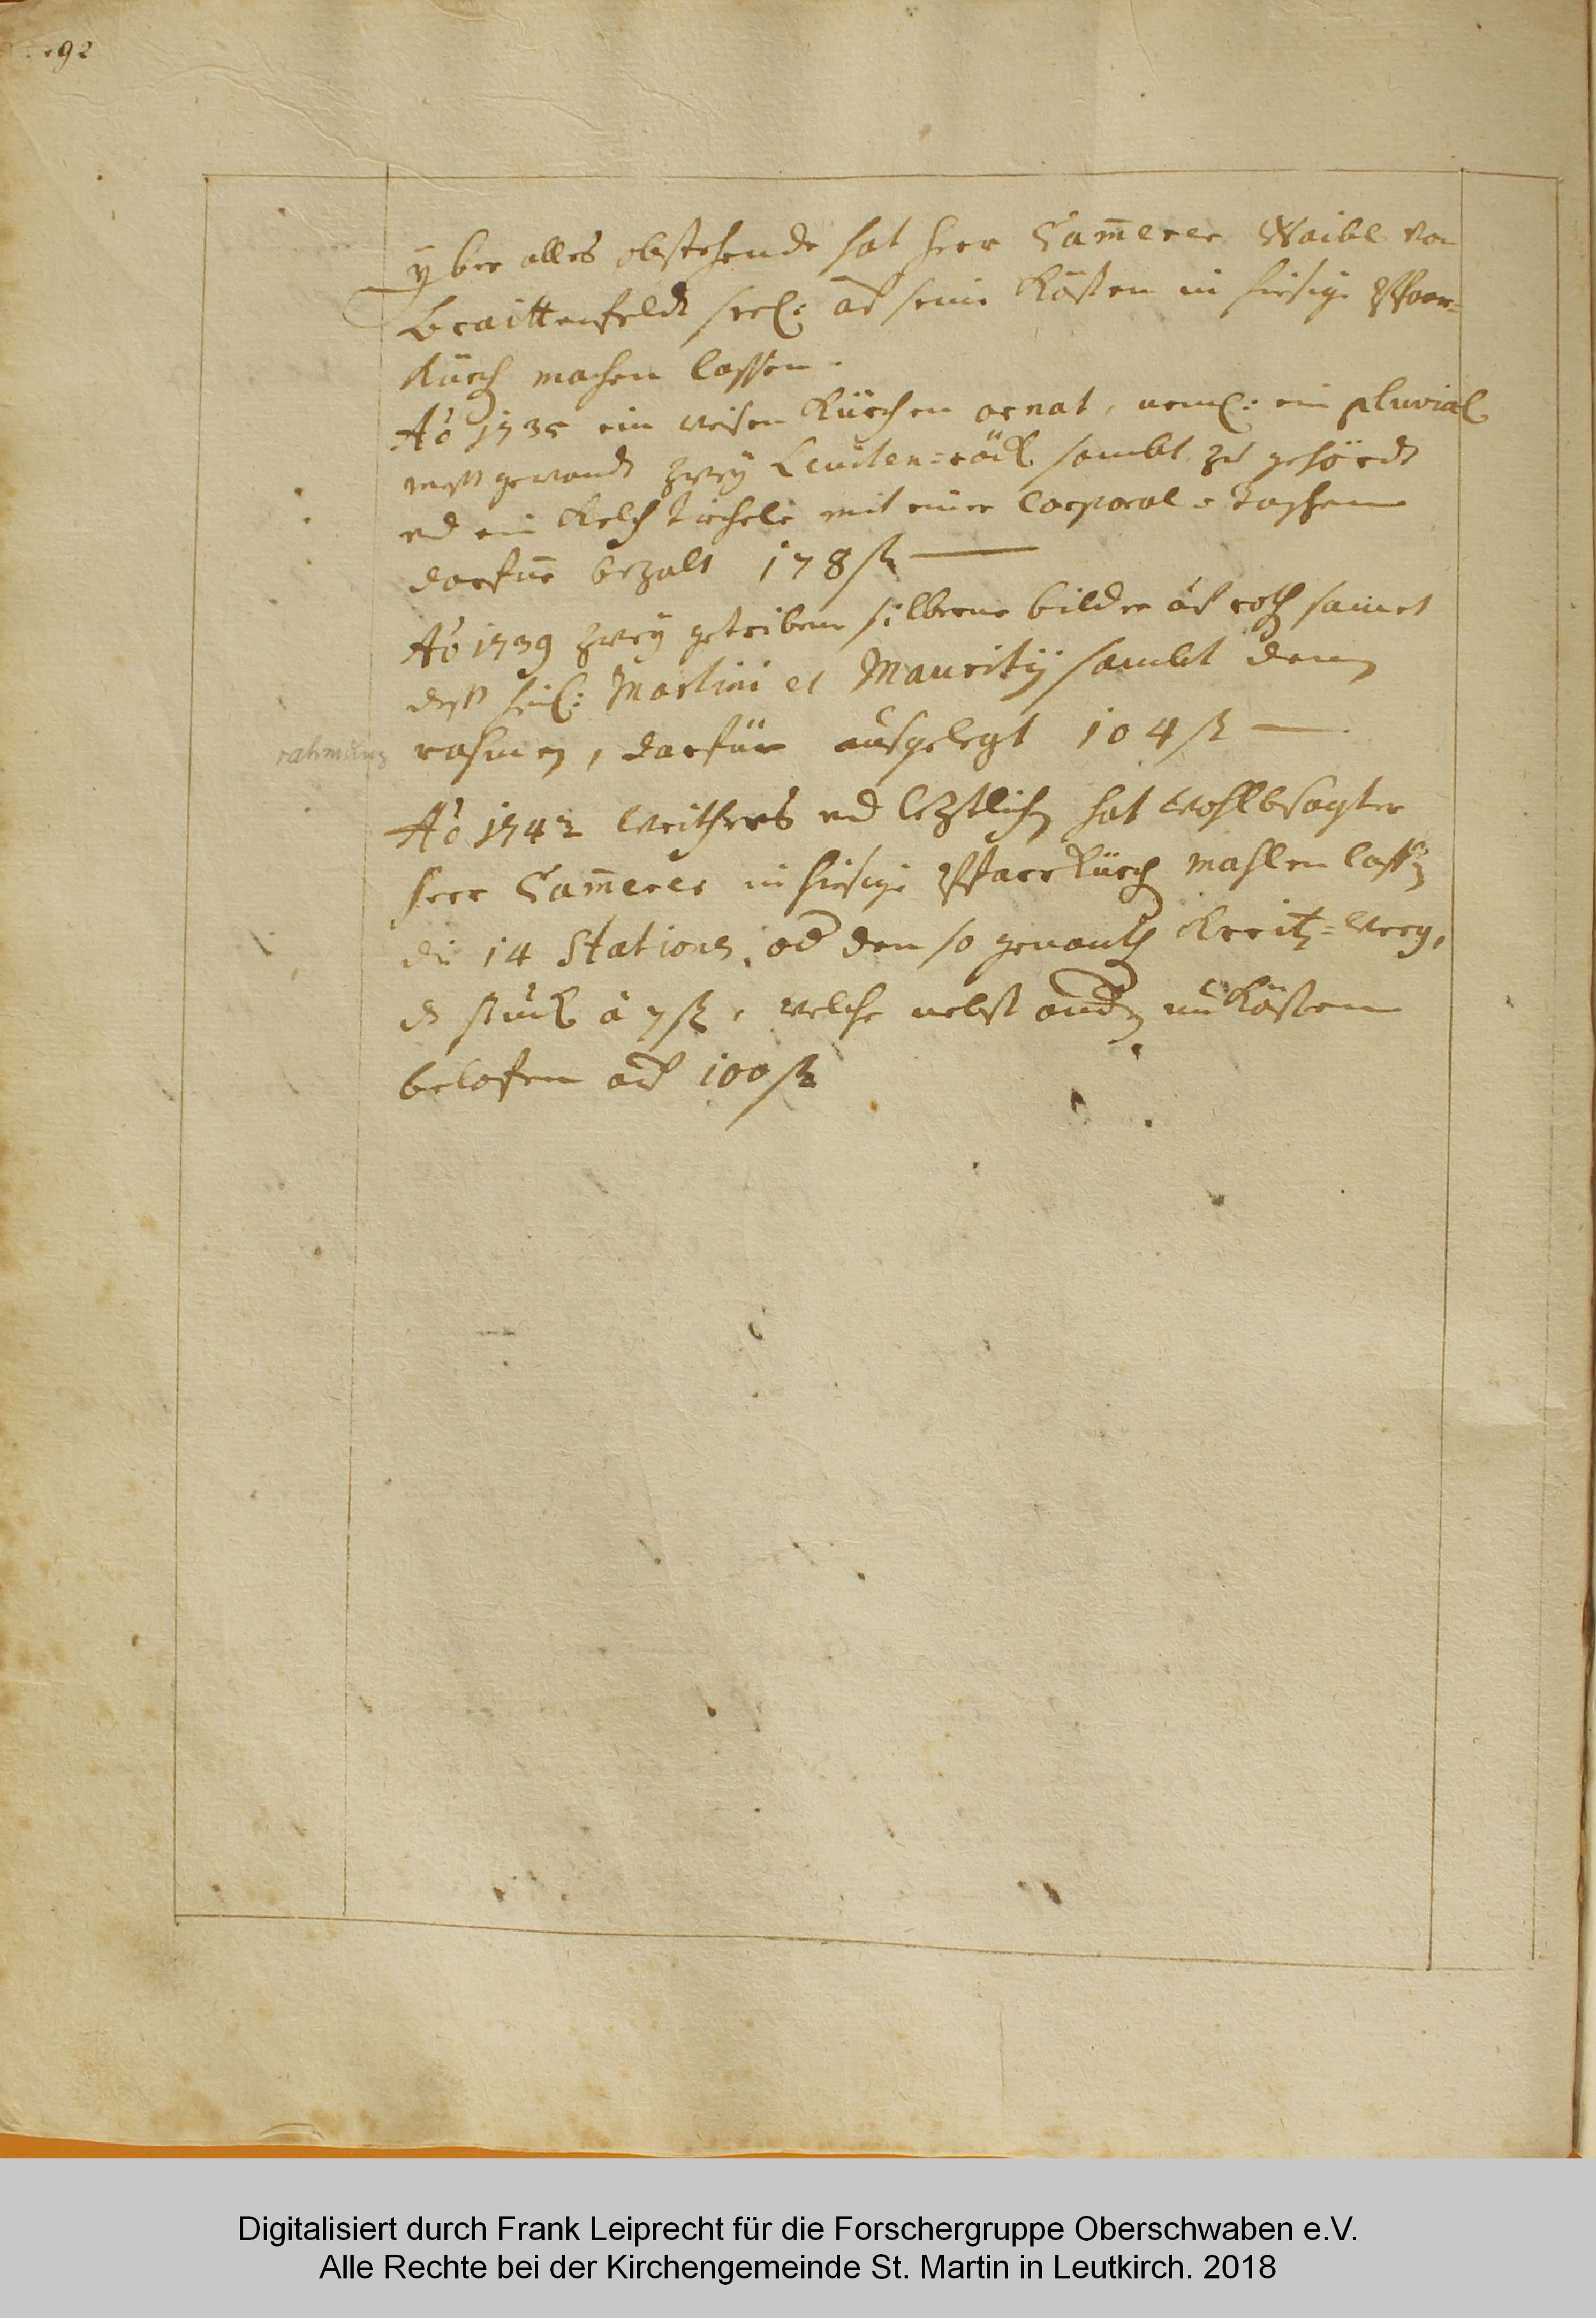 292
yber alles obstehende hat herr Cam̄erer Waibl von
Braittenfeldt seel: auf seine Kösten in hiesige Pfarr=
Kürch machen lassen.
Aõ 1735 ein weisen Kürchen ornat, neml: ein pluvial
mess gewandt zwey Leviten=röck sambt zu gehördt
und ein Kelch tiechele mit einer Corporal=taschen
darfür bezalt 178 fl
Aõ 1739 zwey getribene silberne bilder auf roth samet
dess heil: Martini et Mauritÿ sambt denen
rahmen, darfür ausgelegt 104 fl
rahmung
Aõ 1742 weithers und leztlichen hat wohlbesagter
herr Cam̄erer in hiesige Pfarr Kürch mahlen lassen
die 14 Stationen, od den so genanten Kreitz=weeg,
das stuck à 7 fl, welche nebst anderen unkösten
belofen auf 100 fl
Digitalisiert durch Frank Leiprecht für die Forschergruppe Oberschwaben e.V.
Alle Rechte bei der Kirchengemeinde St. Martin in Leutkirch. 2018